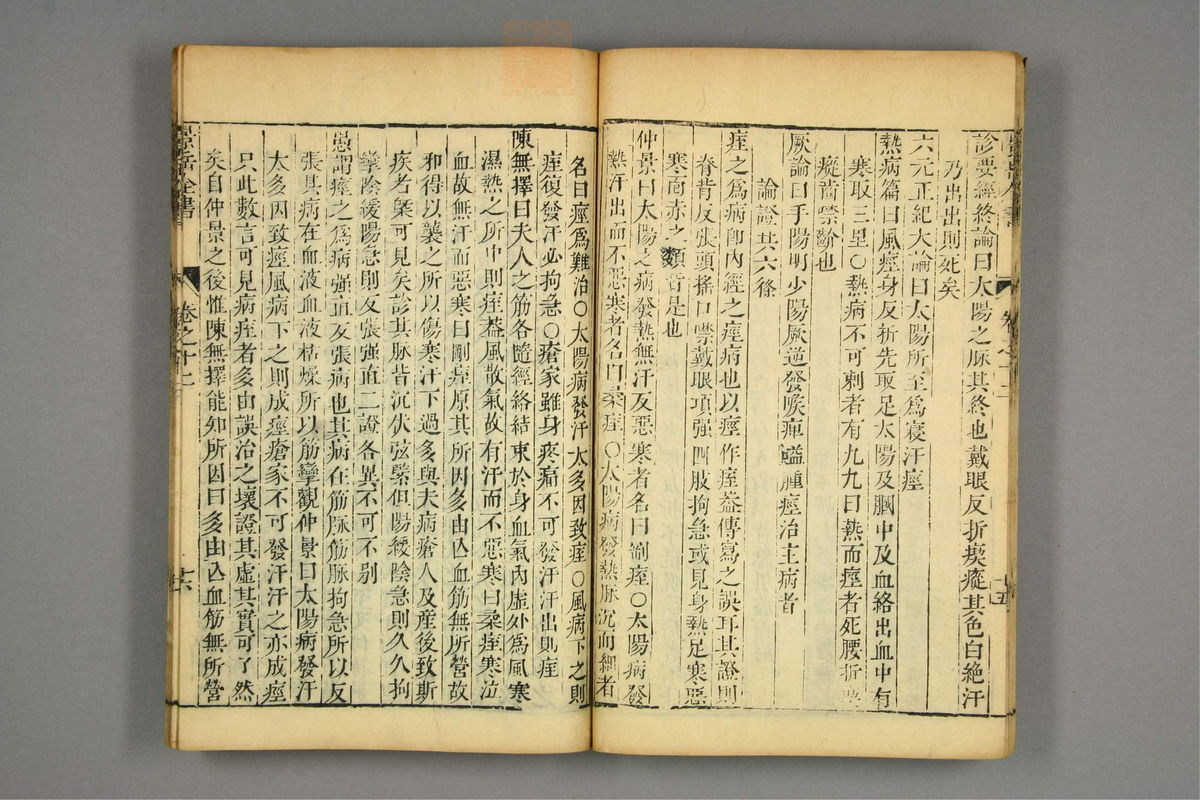 診要經終論曰太陽之脉其終也戴眼反折瘈瘲其色白絕汗
乃出出則死矣
六元正紀大論曰太陽所至爲寢汗痙
熱病篇曰風痙身反折先取足太陽及膕中及血絡出血中有
寒取三里○熱病不可刺者有九九曰熱而痙者死腰折
瘲齒噤齘也
厥論曰手陽明少陽厥逆發喉痺嗌腫痙治主病者
論證共六條
痓之爲病卽內經之痙病也以痙作痓葢傳寫之誤耳其證則
脊背反張頭搖口噤戴眼項强四肢拘急或見身熱足寒惡
寒面赤之類皆是也
仲景曰太陽之病發熱無汗反惡寒者名曰剛痓○太陽病發
熱汗出而不惡寒者名曰柔痓○太陽病發熱脉沉而細者
名曰痙爲難治○太陽病發汗太多因致痓○風病下之則
痓復發汗必拘急○瘡家雖身疼痛不可發汗汗出則痓
陳無擇曰夫人之筋各隨經絡結束於身血氣內虛外爲風寒
濕熱之所中則痓葢風散氣故有汗而不惡寒曰柔痓寒泣
血故無汗而惡寒曰剛痓原其所因多由亾血筋無所營故
邪得以襲之所以傷寒汗下過多與夫病瘡人及產後致斯
疾者槩可見矣診其脉皆沉伏弦緊但陽緩陰急則久久拘
攣陰緩陽急則反張强直二證各異不可不别
愚謂痙之爲病强直反張病也其病在筋脉筋脉拘急所以反
張其病在血液血液枯燥所以筋攣觀仲景曰太陽病發汗
太多因致痙風病下之則成痙瘡家不可發汗汗之亦成痙
只此數言可見病痓者多由誤治之壞證其虛其實可了然
矣自仲景之後惟陳無擇能知所因曰多由亾血筋無所營
景岳全書
卷之十二
十六
十五